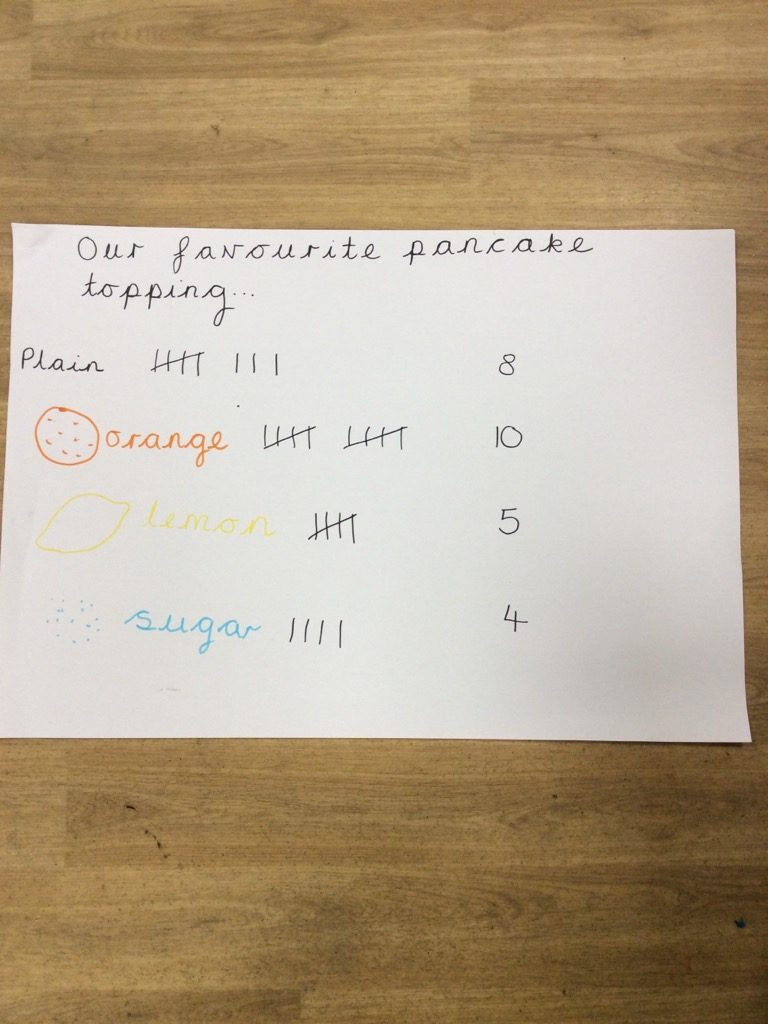 Our favourite pancake
topping...
Plain 8
orange 10
lemon 5
sugar 4